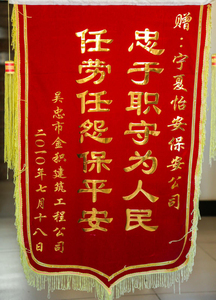 赠：宁夏怡安保安公司
忠于职守为人民
任劳任怨保平安
吴忠市金积建筑工程公司
二〇一〇年七月十八日